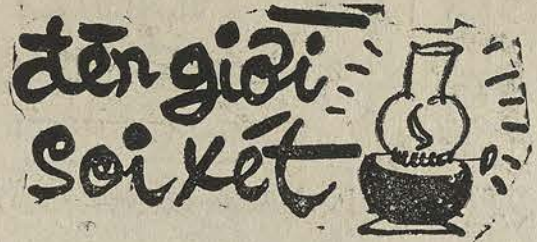 đèn giời
soi xét